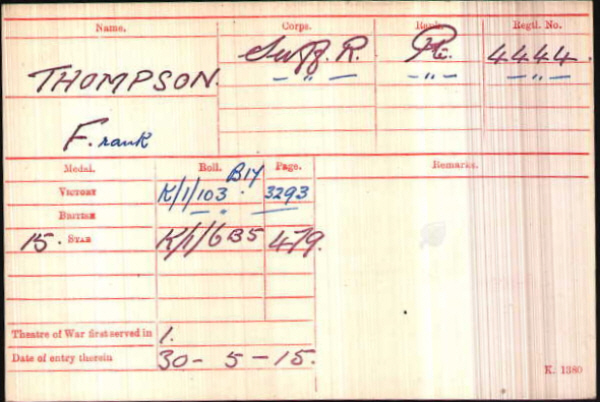 Name. Corps. Rank. Regtl. No.
THOMPSON. Suff. R. Pte. 4444.
— " — — " — — " —
F. rank
Medal. Roll. Page. Remarks.
B14
VICTORY K/1/103 3293
BRITISH — " — —
15. STAR K/1/6 B5 479.
Theatre of War first served in 1.
Date of entry therein 30 - 5 - 15.
K. 1380